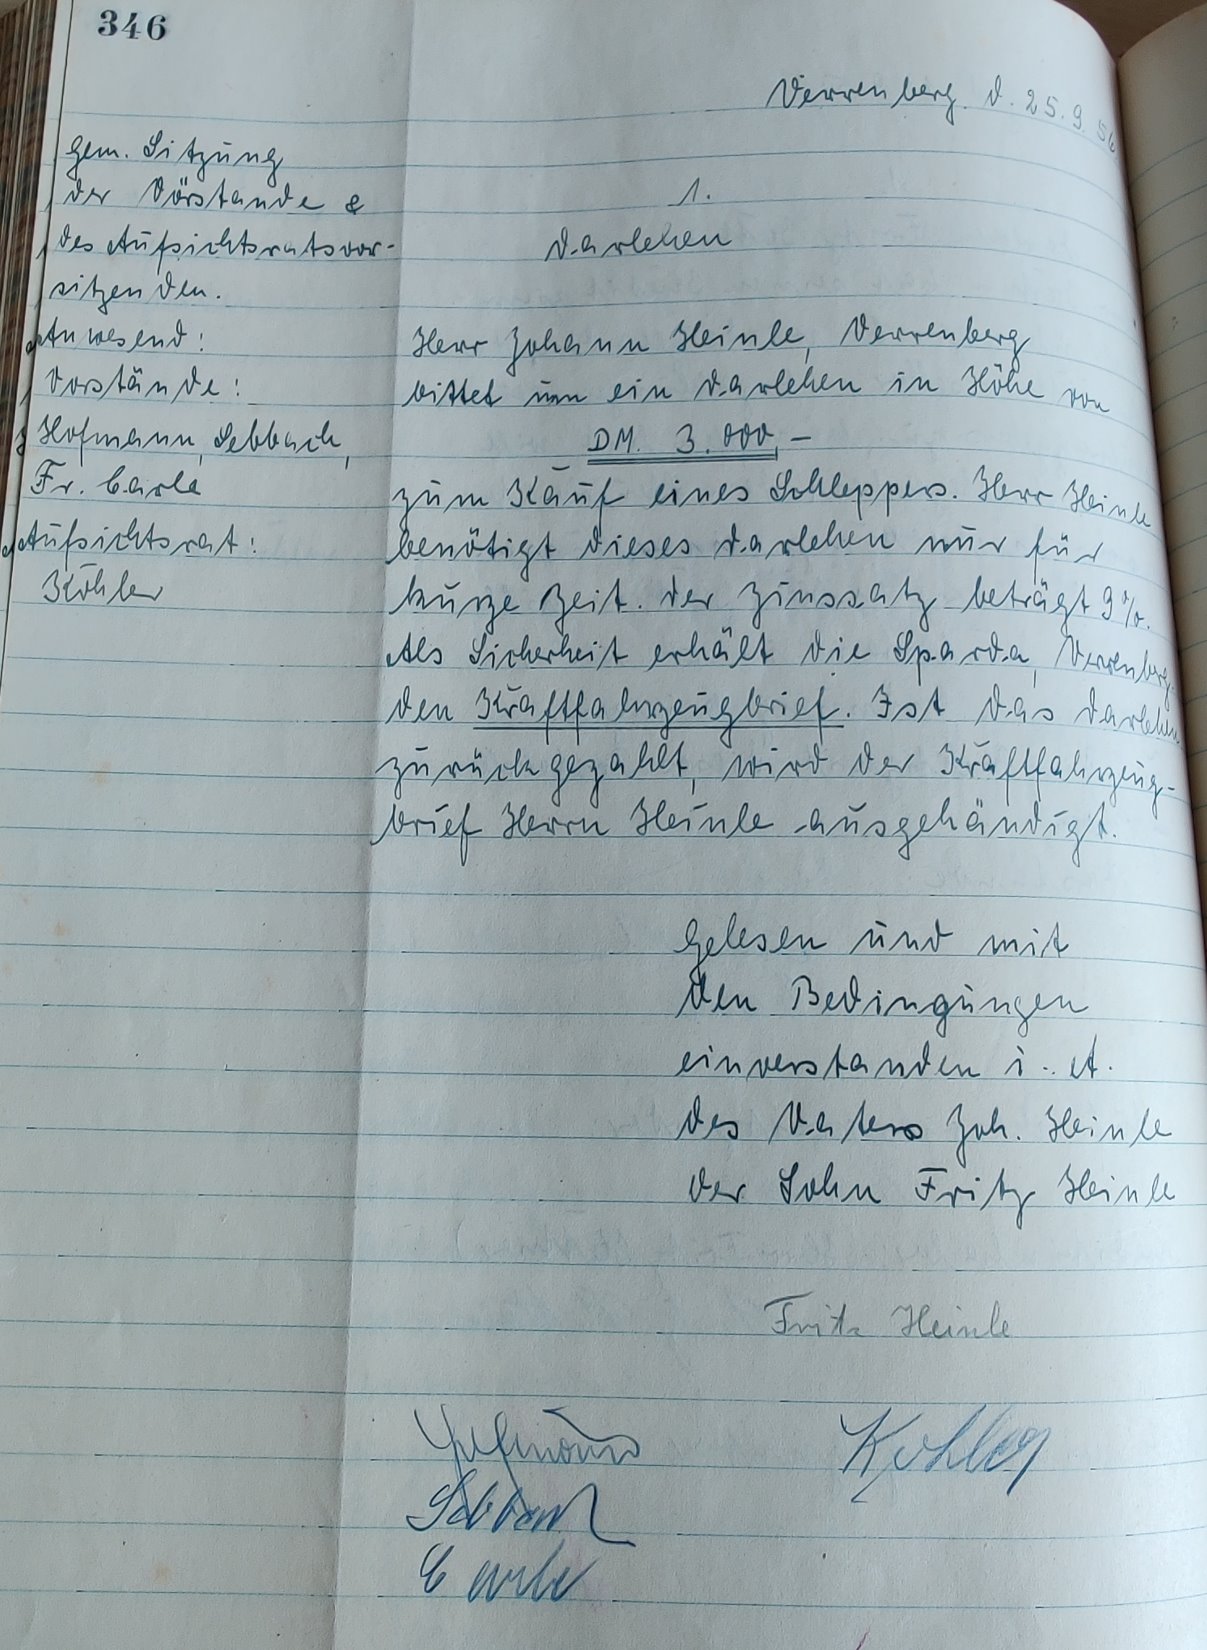 346
Verrenberg d. 25.9.56
Gem. Sitzung
der Vorstande &
des Aufsichtsratsvor-
sitzenden.
Anwesend:
Vorstände:
Hofmann, Sebbach,
Fr. Carle
Aufsichtsrat:
Kohler
1.
Darlehen
Herr Johann Heinle, Verrenberg
bittet um ein Darlehen in Höhe von
DM. 3.000,-
zum Kauf eines Schleppers. Herr Heinle
benötigt dieses Darlehen nur für
kurze Zeit. Der Zinssatz beträgt 9%.
Als Sicherheit erhält die Sparda, Verrenberg
den Kraftfahrzeugbrief. Ist das Darlehen
zurückgezahlt, wird der Kraftfahrzeug-
brief Herrn Heinle ausgehändigt.
Gelesen und mit
den Bedingungen
einverstanden i. A.
des Vaters Joh. Heinle
der Sohn Fritz Heinle
Fritz Heinle
Hofmann
Kohler
Sebbach
Carle